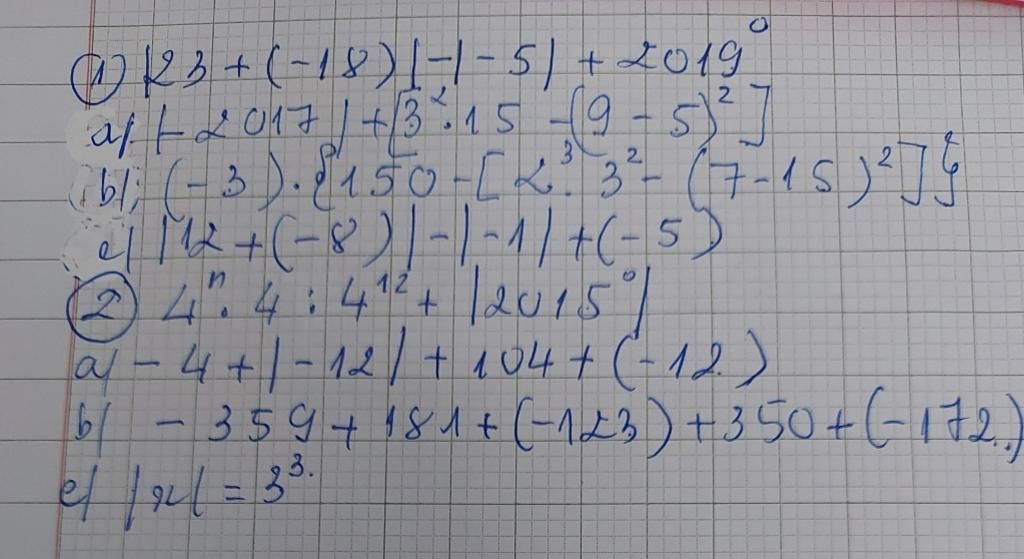 ① |23 + (-18)| - |-5| + 2019⁰
a) |-2017| + [3².15 - (9 - 5)²]
b) (-3).{150 - [2³.3² - (7-15)²]}
c) |12 + (-8)| - |-1| + (-5)
② 4ⁿ.4 : 4¹² + |2015⁰|
a) - 4 + |-12| + 104 + (-12)
b) - 359 + 181 + (-123) + 350 + (-172)
c) |x| = 3³.